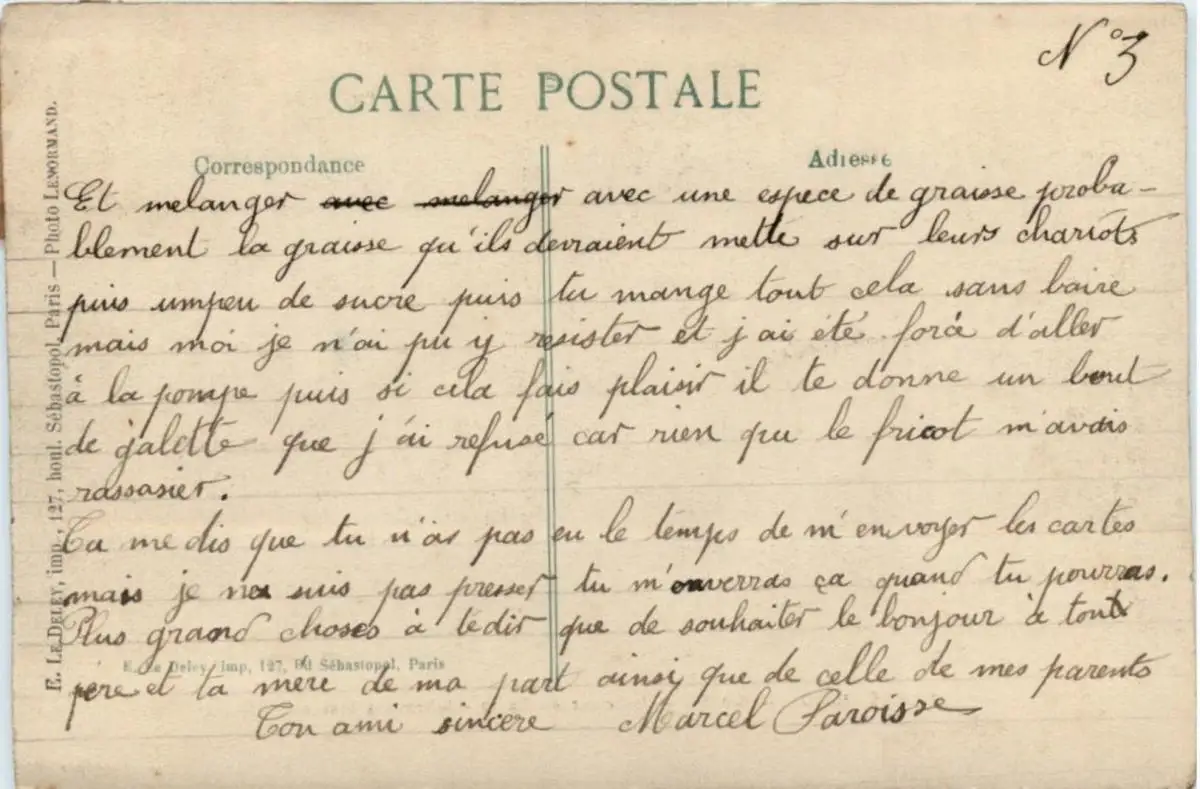 N°3
CARTE POSTALE
Correspondance
Adresse
Et melanger avec melanger avec une espece de graisse proba-
blement la graisse qu'ils devraient mette sur leurs chariots
puis umpeu de sucre puis tu mange tout cela sans boire
mais moi je n'ai pu y resister et j'ai été forcé d'aller
â la pompe puis si cela fais plaisir il te donne un bout
de galette que j'ai refusé car rien qu le fricot m'avais
rassasier.
Ta me dis que tu n'as pas eu le temps de m'envoyer les cartes
mais je ne suis pas presser tu m'enverras ça quand tu pourras.
Plus grand choses à tedir que de souhaiter le bonjour à tont
père et ta mère de ma part ainsi que de celle de mes parents
Ton ami sincere Marcel Paroisse
E. Le Deley, imp, 127, Bd Sébastopol, Paris
E. LE DELEY, imp., 127, boul. Sébastopol, Paris — Photo LENORMAND.